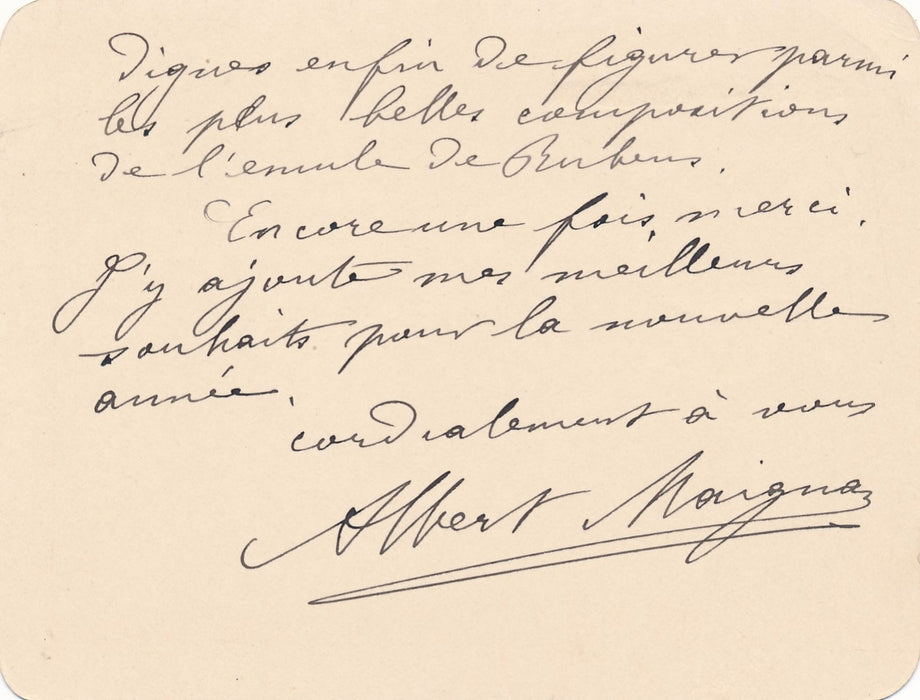 dignes enfin de figurer parmi
les plus belles compositions
de l'emule de Rubens.
Encore une fois, merci.
J'y ajoute mes meilleurs
souhaits pour la nouvelle
année.
cordialement à vous
Albert Maignan